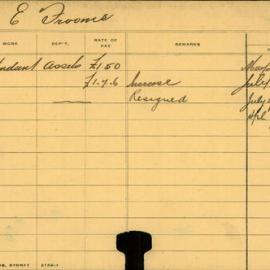 E Frooms
WORK DEP'T. RATE OF PAY REMARKS
ndant Assets £1.5.0 May
£1.7.6 Increase July
Resigned July
Apl
SYDNEY